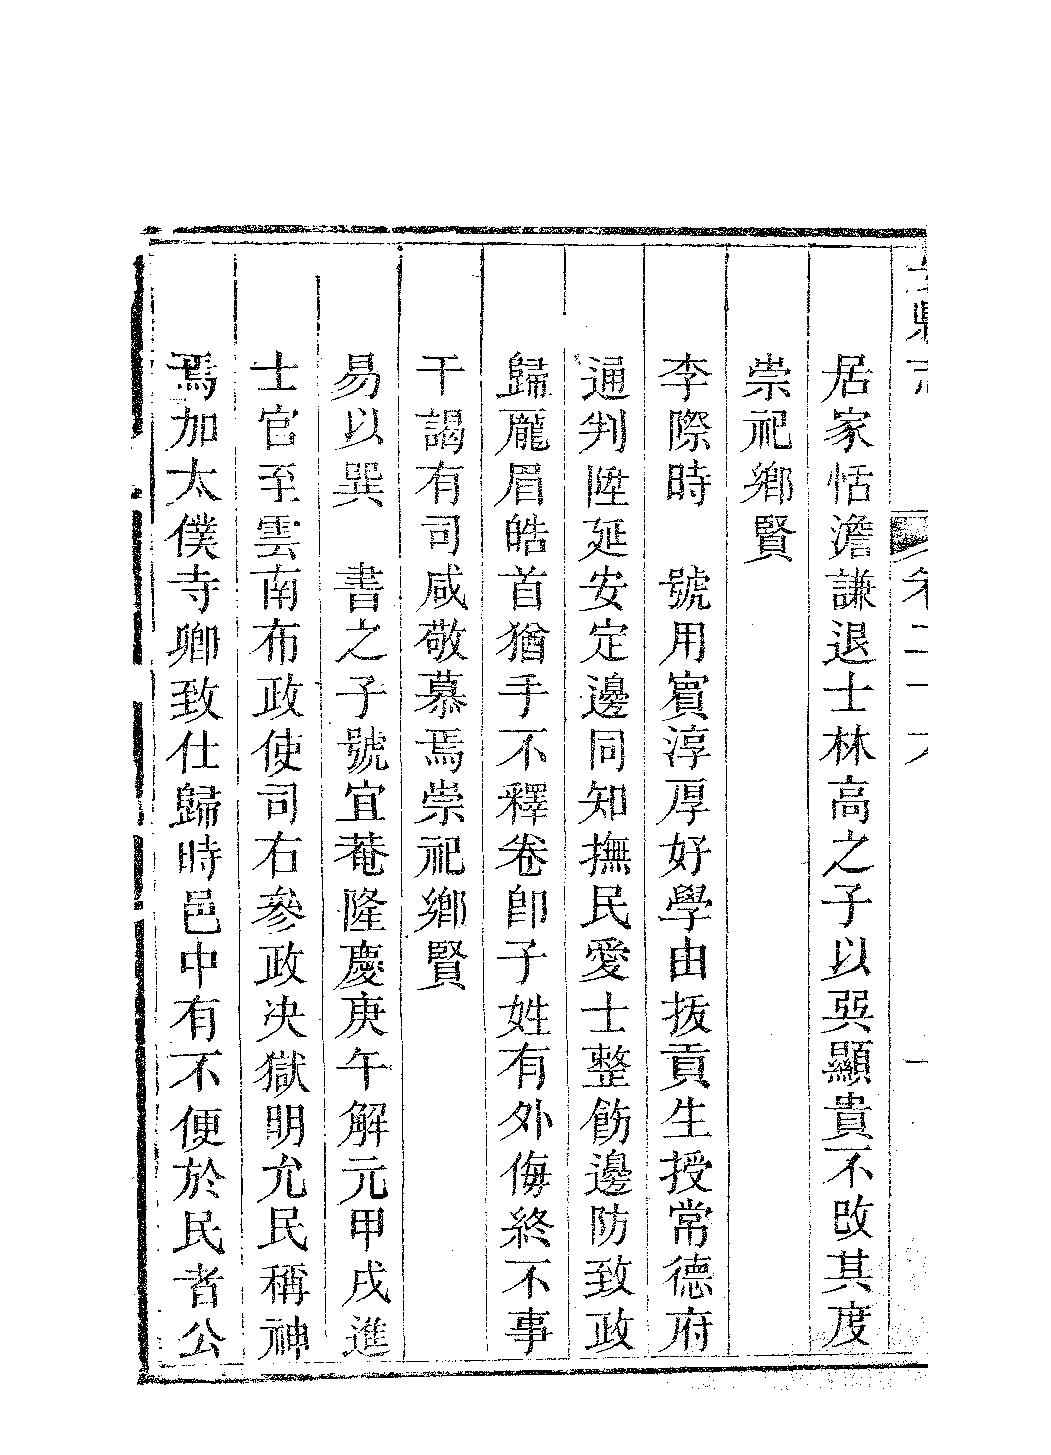 縣志
卷二十六
居家恬澹謙退士林高之子以巽顯貴不改其度
崇祀鄉賢
李際時　號用賓淳厚好學由拔貢生授常德府
通判陞延安定邊同知撫民愛士整飭邊防致政
歸龐眉皓首猶手不釋卷卽子姓有外侮終不事
干謁有司咸敬慕焉崇祀鄉賢
易以巽　書之子號宜菴隆慶庚午解元甲戌進
士官至雲南布政使司右參政决獄明允民稱神
焉加太僕寺卿致仕歸時邑中有不便於民者公